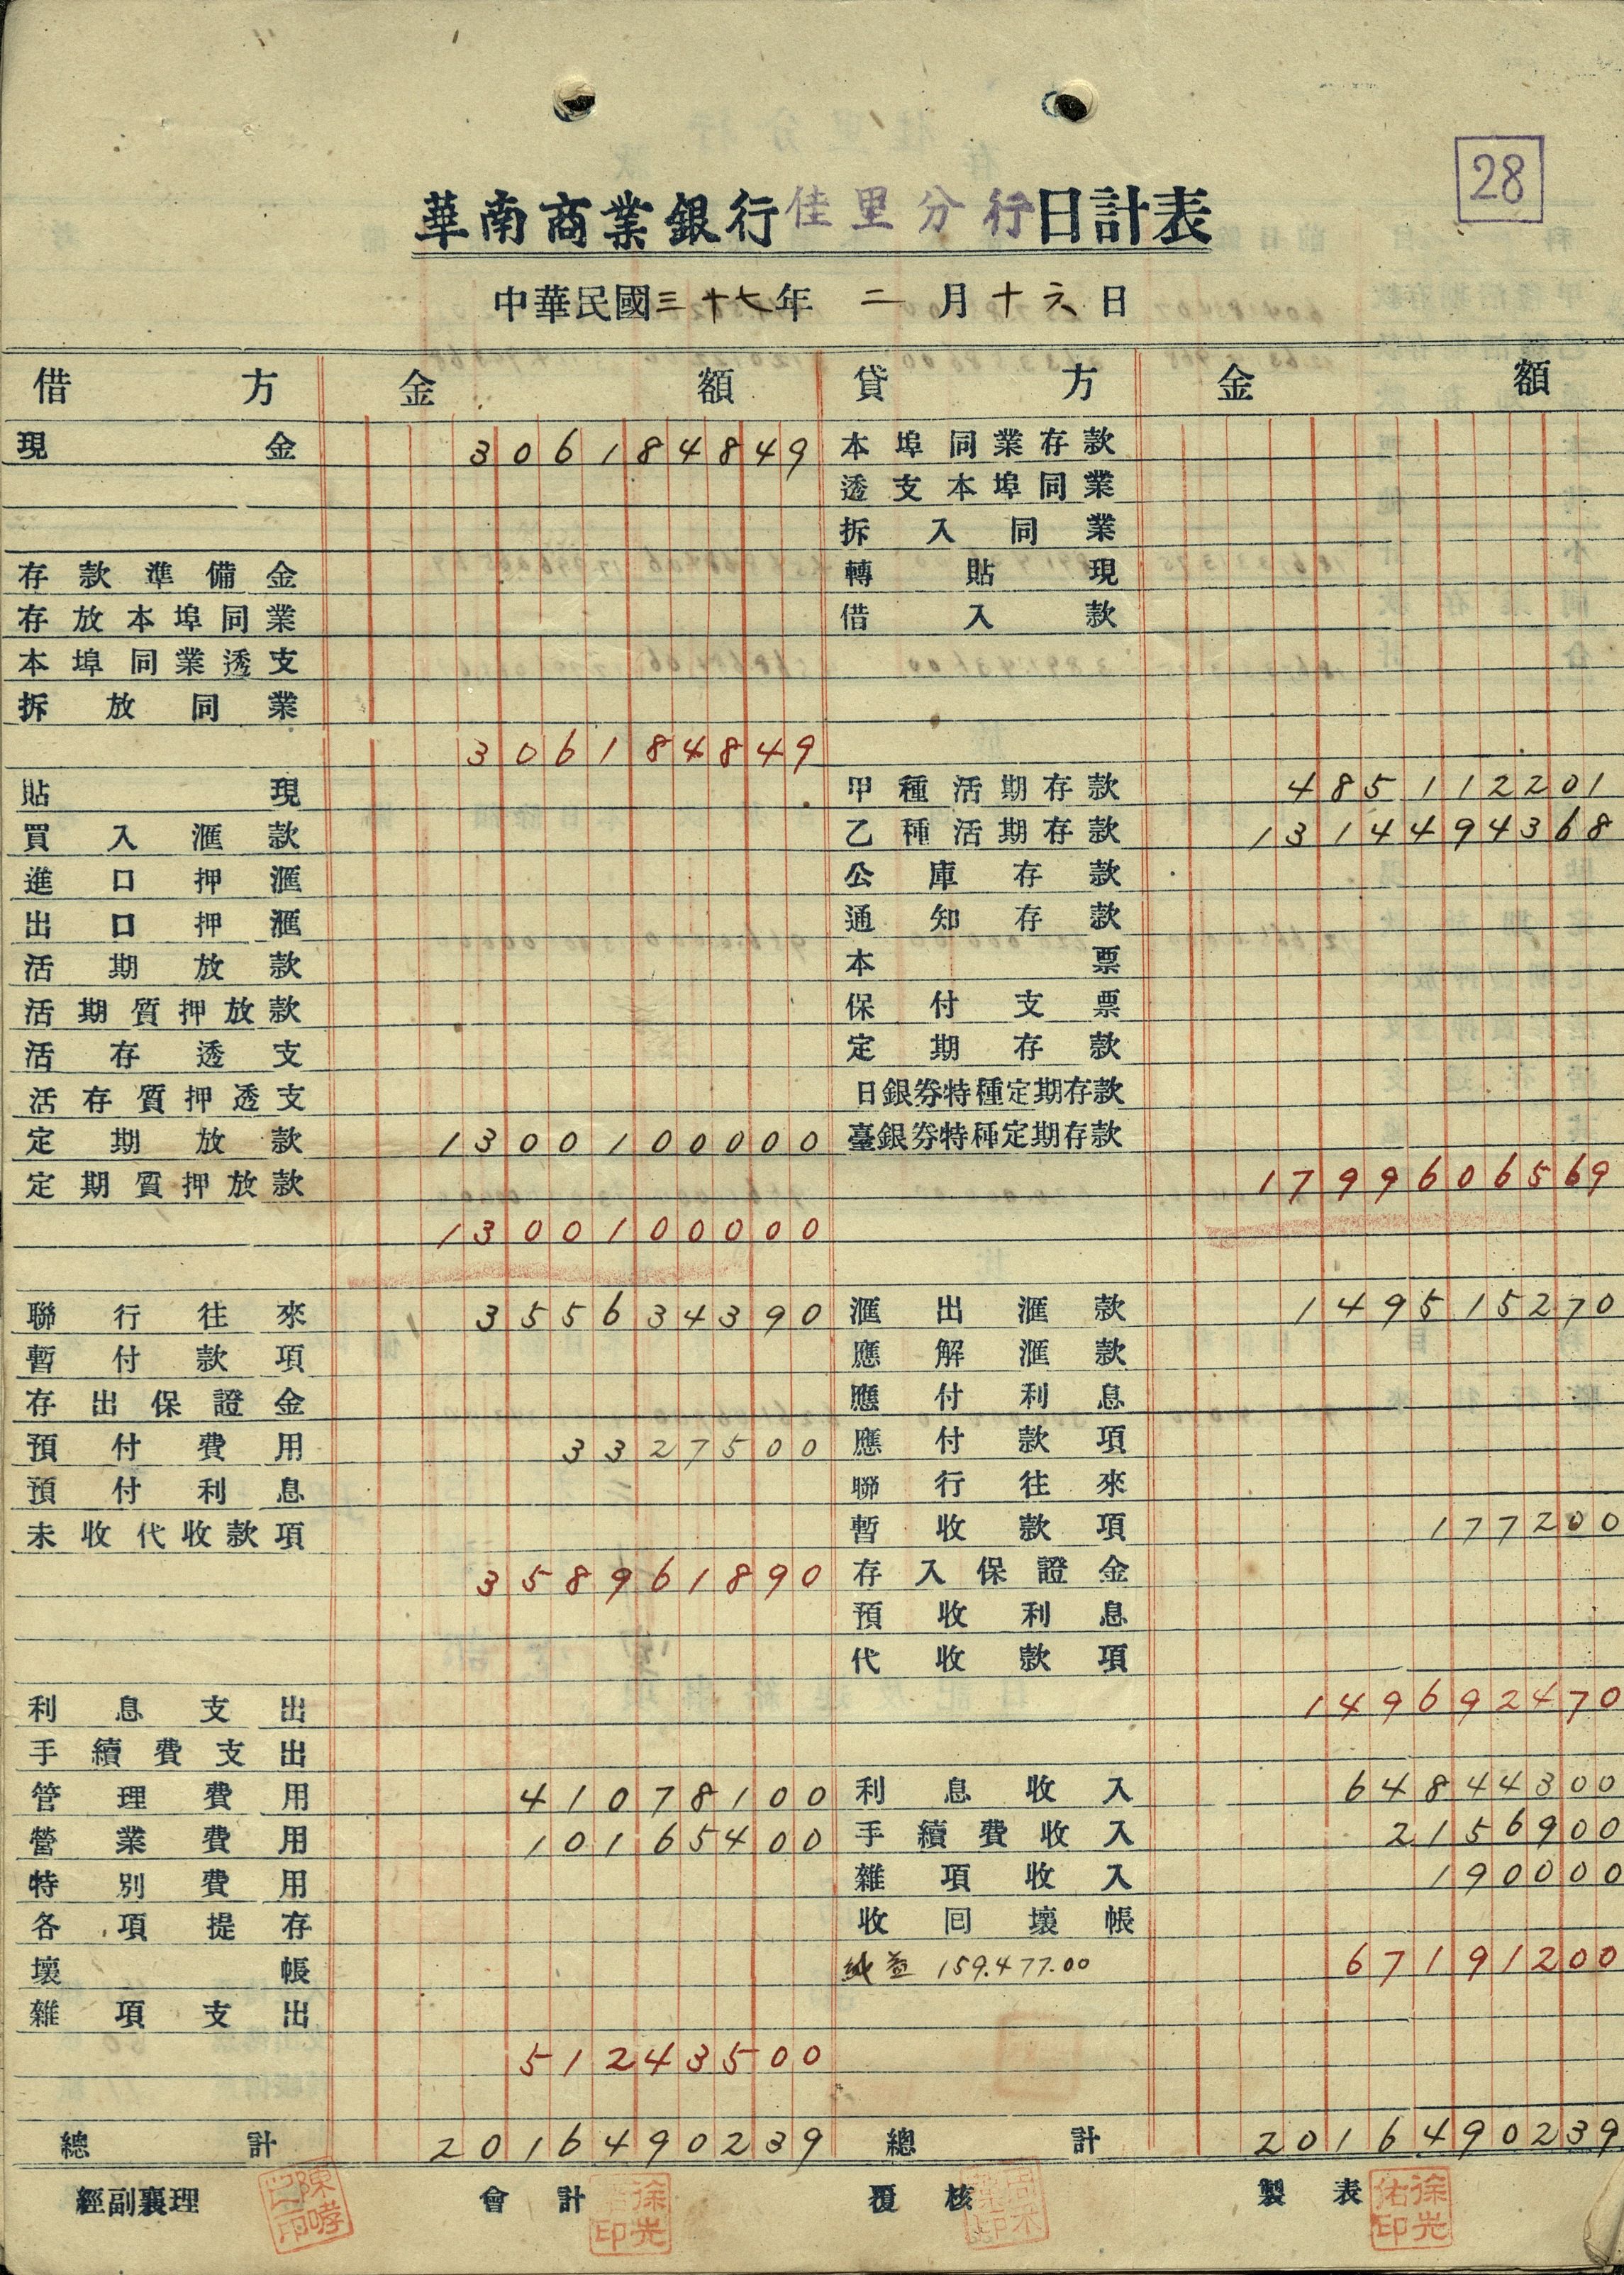 28
華南商業銀行佳里分行日計表
中華民國三十七年 二 月 十六 日
借方 金額 貸方 金額
現金 306184849 本埠同業存款
透支本埠同業
拆入同業
存款準備金 轉貼現
存放本埠同業 借入款
本埠同業透支
拆放同業
306184849
貼現 甲種活期存款 485112201
買入滙款 乙種活期存款 1314494368
進口押滙 公庫存款
出口押滙 通知存款
活期放款 本票
活期質押放款 保付支票
活存透支 定期存款
活存質押透支 日銀券特種定期存款
定期放款 1300100000 臺銀券特種定期存款
定期質押放款 1799606569
1300100000
聯行往來 355634390 滙出滙款 149515270
暫付款項 應解滙款
存出保證金 應付利息
預付費用 3327500 應付款項
預付利息 聯行往來
未收代收款項 暫收款項 177200
358961890 存入保證金
預收利息
代收款項
利息支出 149692470
手續費支出
管理費用 41078100 利息收入 64844300
營業費用 10165400 手續費收入 2156900
特別費用 雜項收入 190000
各項提存 收回壞帳
壞帳 純益 159.477.00 67191200
雜項支出
51243500
總計 2016490239 總計 2016490239
經副襄理 會計 覆核 製表
徐光佑印